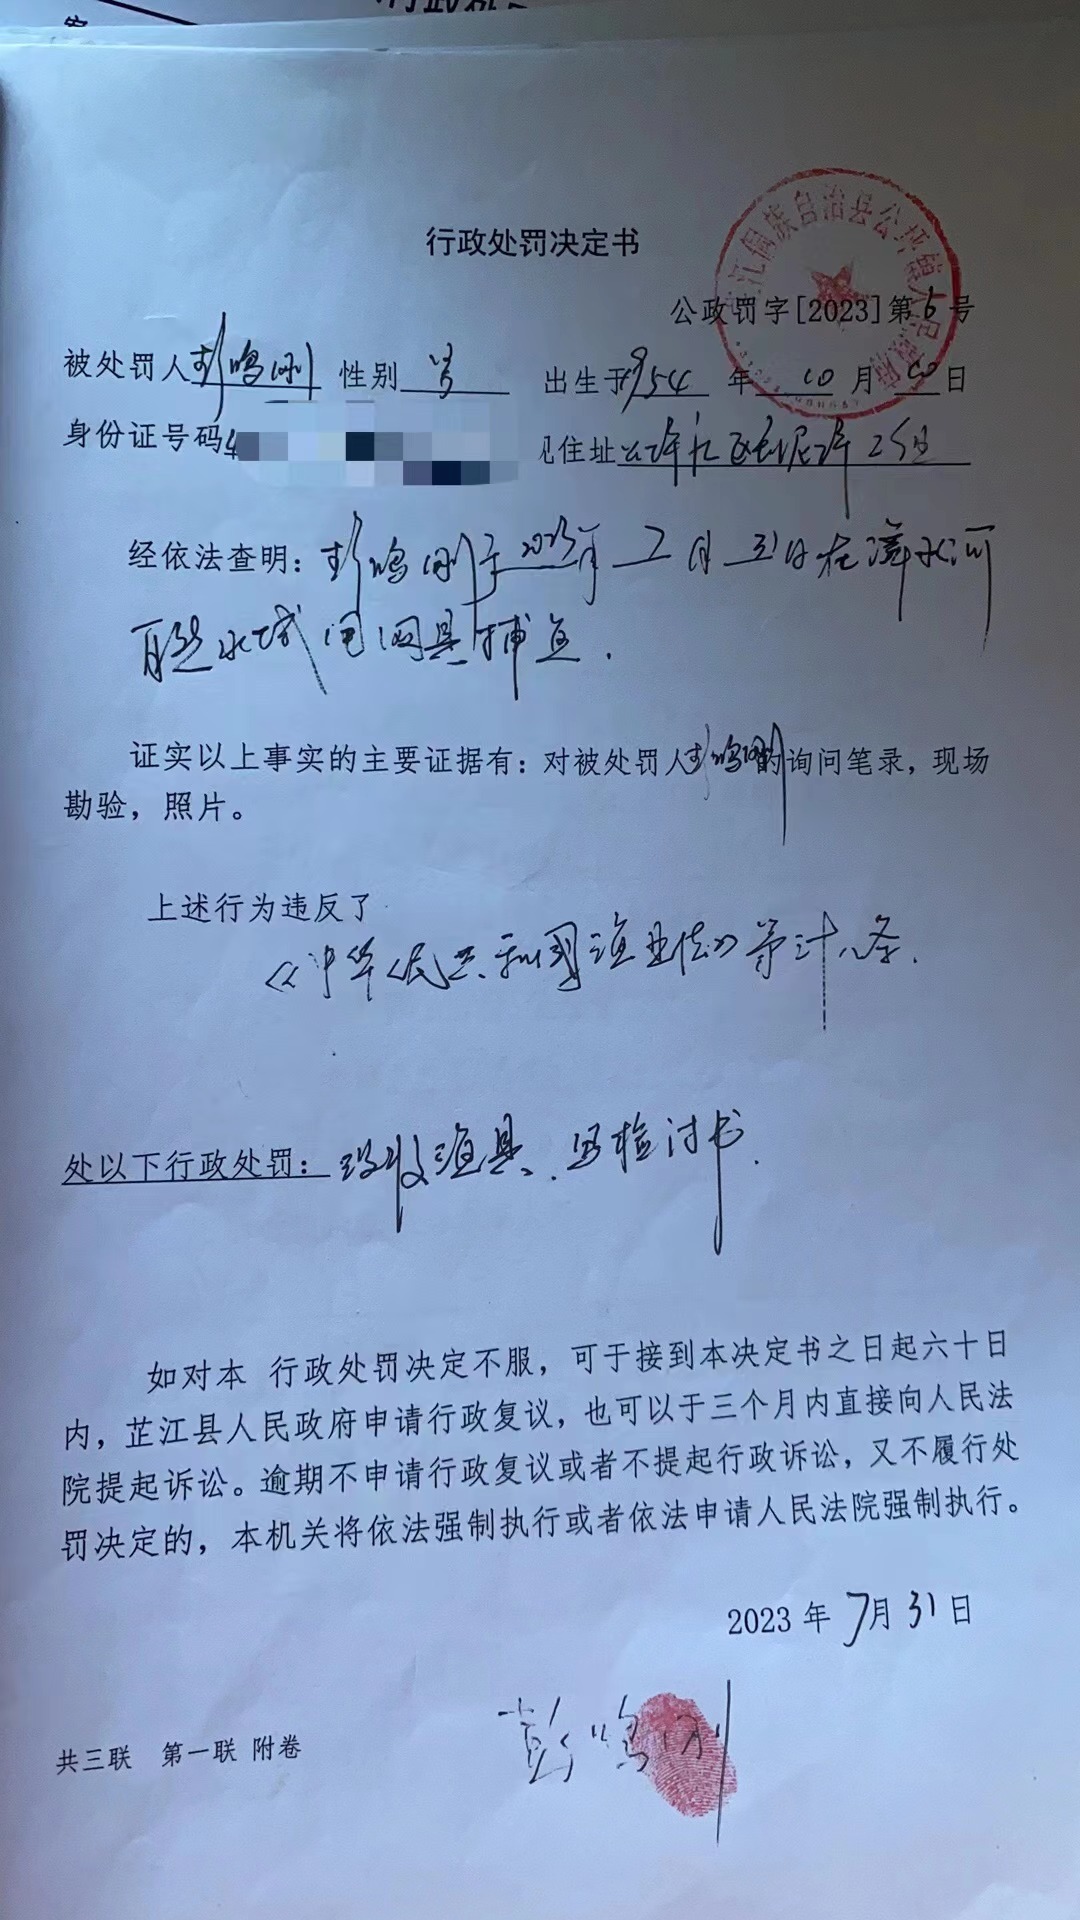 行政处罚决定书
公政罚字[2023]第6号
被处罚人彭鸣刚 性别 男 出生于1954年 10月 10日
身份证号码4 现住址
经依法查明：彭鸣刚于2023年 7月 31日在
水域用网具捕鱼.
证实以上事实的主要证据有：对被处罚人彭鸣刚的询问笔录，现场
勘验，照片。
上述行为违反了
《中华人民共和国渔业法》第三十八条.
处以下行政处罚：没收渔具、写检讨书.
如对本 行政处罚决定不服，可于接到本决定书之日起六十日
内，芷江县人民政府申请行政复议，也可以于三个月内直接向人民法
院提起诉讼。逾期不申请行政复议或者不提起行政诉讼，又不履行处
罚决定的，本机关将依法强制执行或者依法申请人民法院强制执行。
2023年7月31日
彭鸣刚
共三联 第一联 附卷